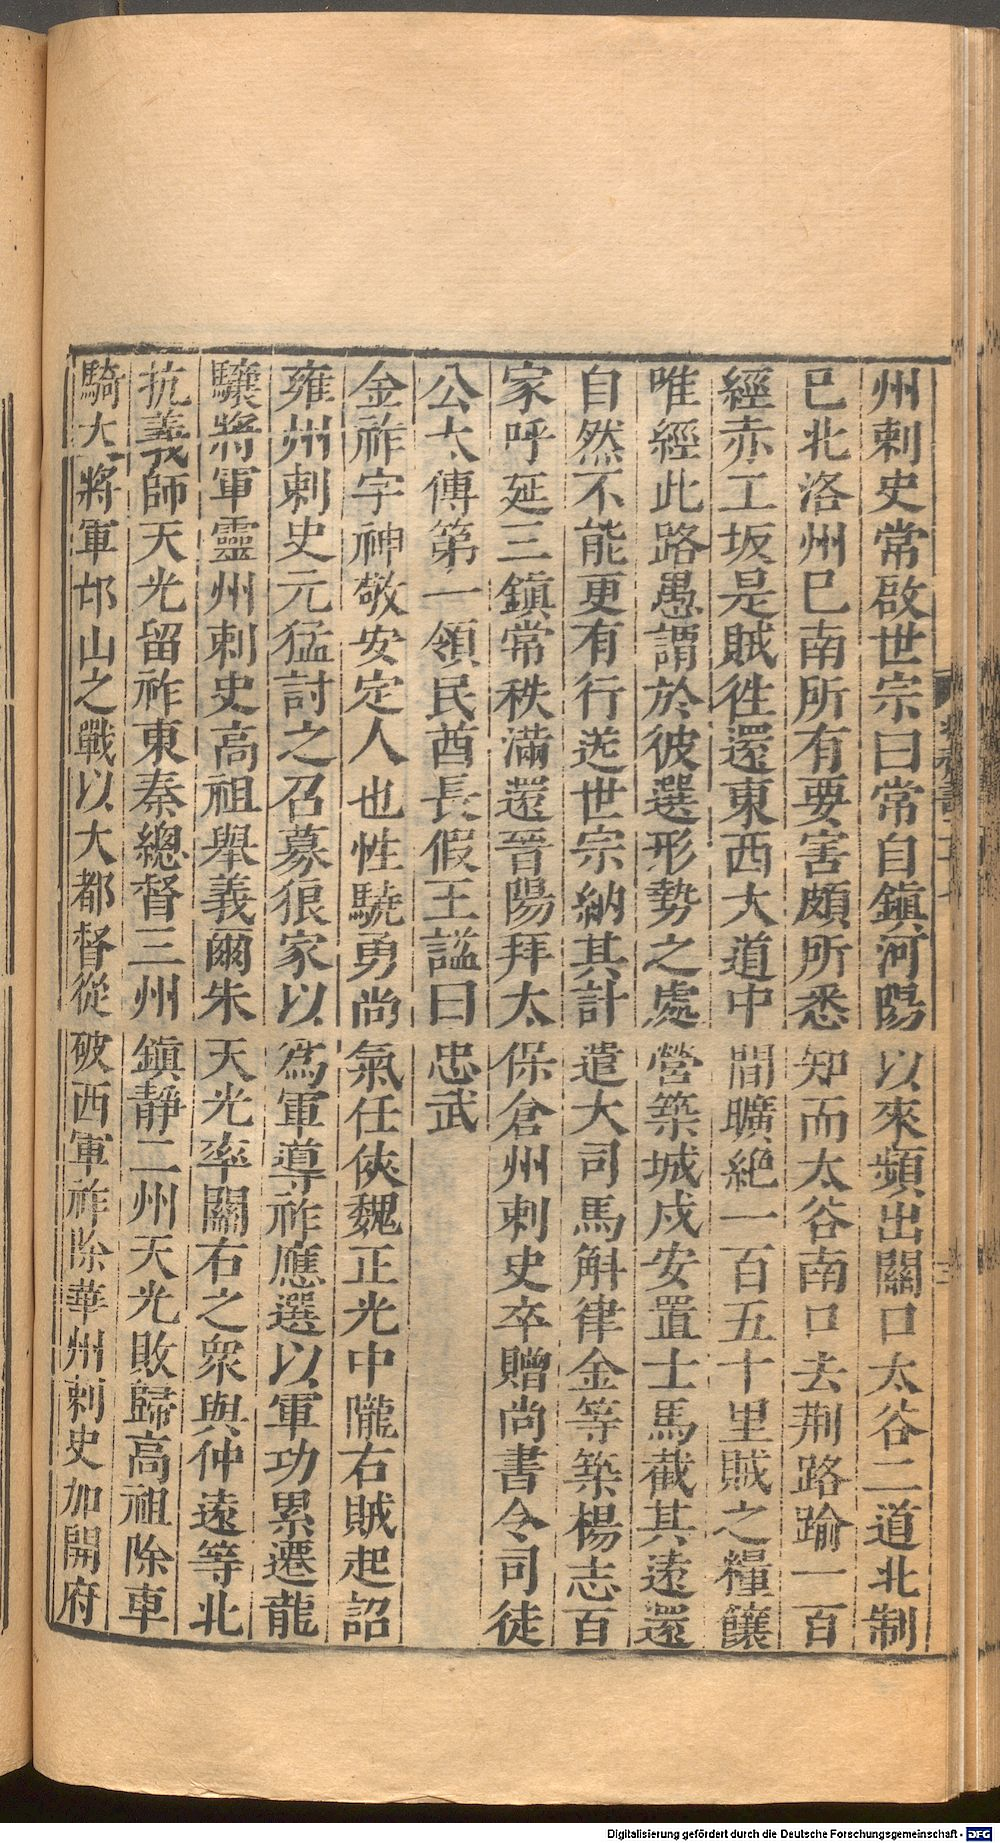 州刺史常啟世宗曰常自鎮河陽以來頻出關口太谷二道北制
巳北洛州巳南所有要害頗所悉知而太谷南口去荆路踰一百
經赤工坂是賊徃還東西大道中間曠絶一百五十里賊之糧饟
唯經此路愚謂於彼選形勢之處營築城戍安置士馬截其遠還
自然不能更有行送世宗納其計遣大司馬斛律金等築楊志百
家呼延三鎮常秩滿還晉陽拜太保倉州刺史卒贈尚書令司徒
公太傅第一領民酋長假王謚曰忠武
金祚字神敬安定人也性驍勇尚氣任俠魏正光中隴右賊起詔
雍州刺史元猛討之召募狼家以爲軍導祚應選以軍功累遷龍
驤將軍靈州刺史高祖舉義爾朱天光率關右之衆與仲遠等北
抗義師天光留祚東秦總督三州鎮靜二州天光敗歸高祖除車
騎大將軍邙山之戰以大都督從破西軍祚除華州刺史加開府
Digitalisierung gefördert durch die Deutsche Forschungsgemeinschaft - DFG